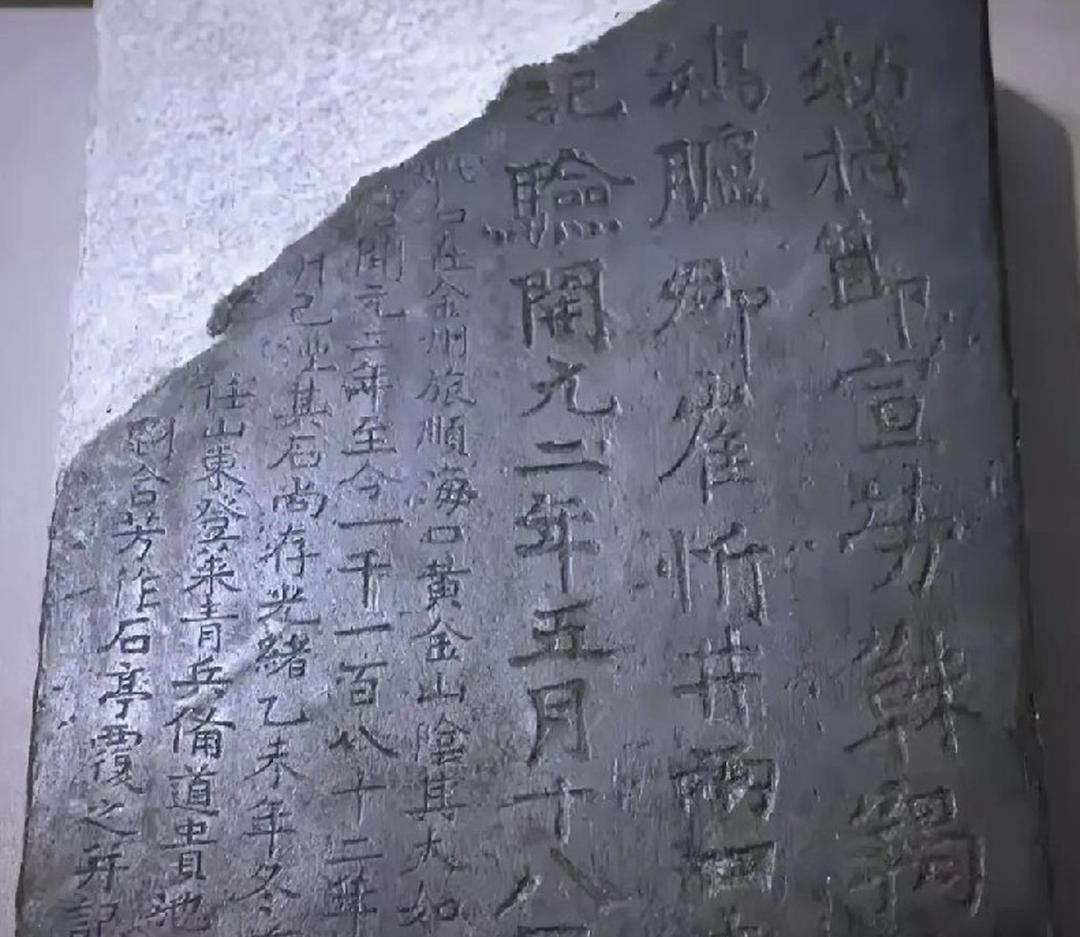 勅持節宣勞靺羯
鴻臚卿崔忻井兩口
記驗開元二年五月十八
此石在金州旅順海口黃金山陰其大如
開元二年至今一千一百八十二年
井已湮其石尚存光緒乙未年冬
任山東登萊青兵備道貴池
劉含芳作石亭覆之并記